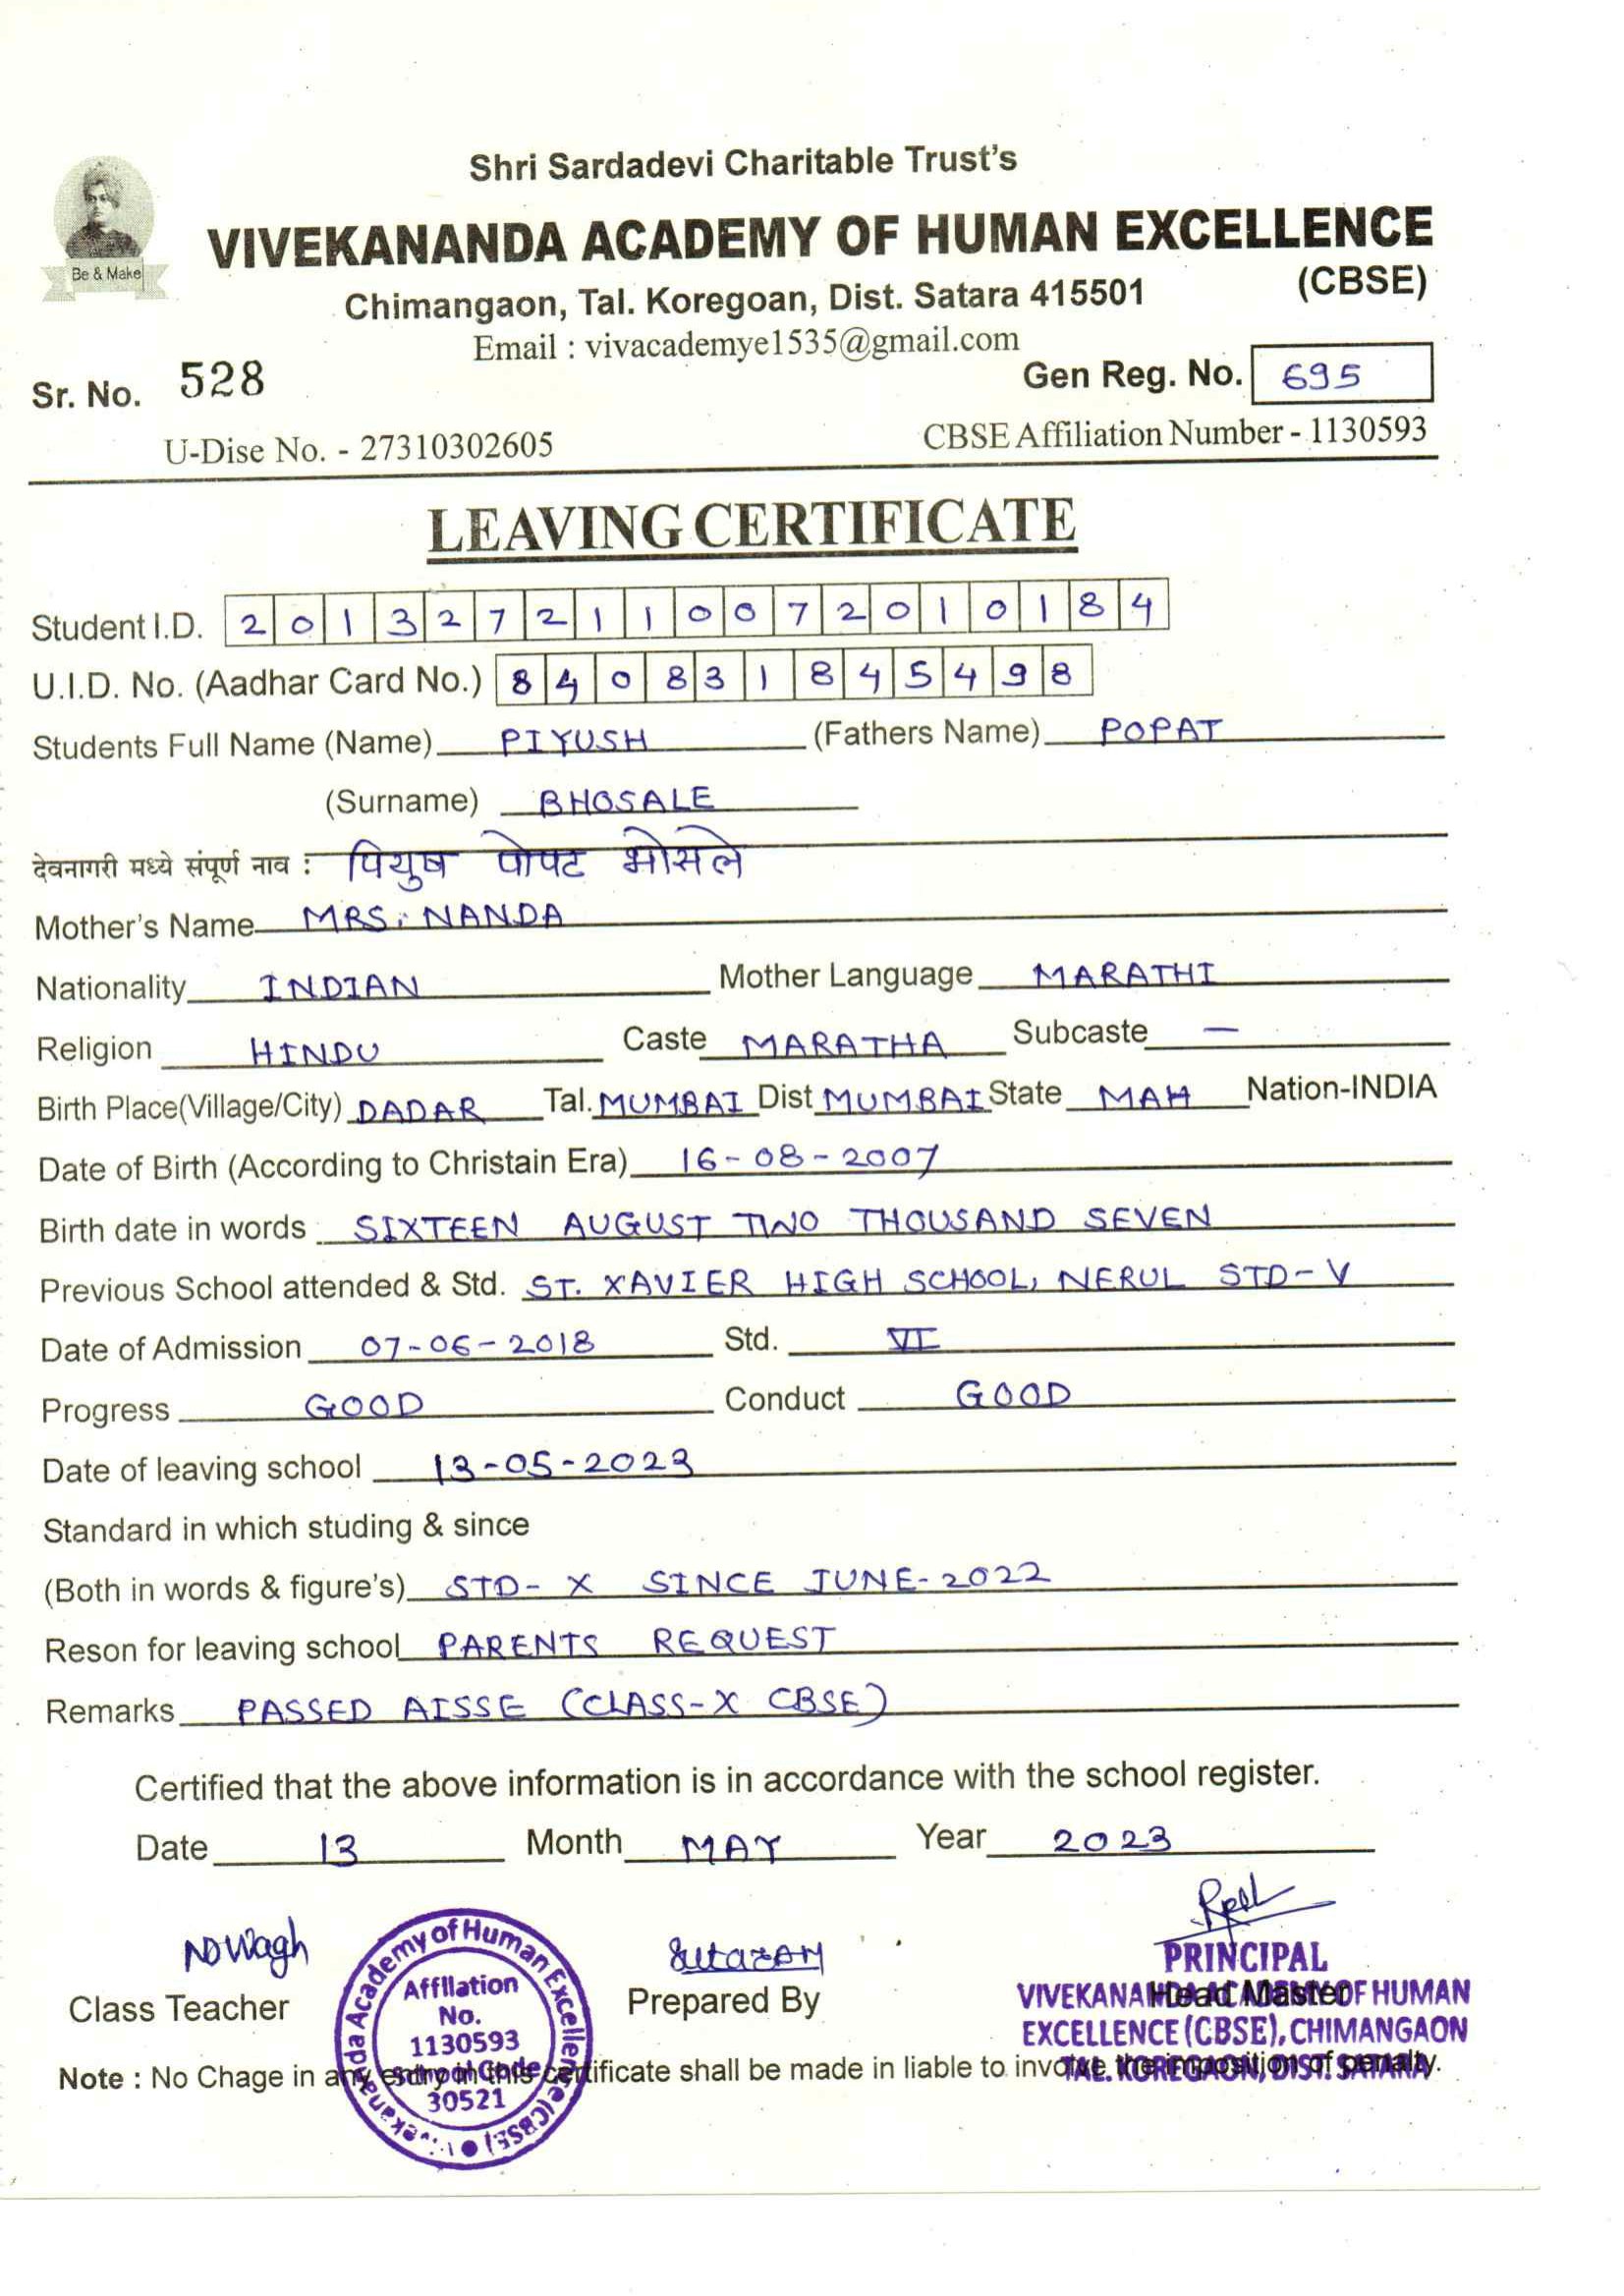 Shri Sardadevi Charitable Trust's
Be & Make
VIVEKANANDA ACADEMY OF HUMAN EXCELLENCE
(CBSE)
Chimangaon, Tal. Koregoan, Dist. Satara 415501
Email : vivacademye1535@gmail.com
Sr. No. 528 Gen Reg. No. 695
U-Dise No. - 27310302605 CBSE Affiliation Number - 1130593
LEAVING CERTIFICATE
Student I.D. 2013272110072010184
U.I.D. No. (Aadhar Card No.) 840831845498
Students Full Name (Name) PIYUSH (Fathers Name) POPAT
(Surname) BHOSALE
देवनागरी मध्ये संपूर्ण नाव : पियुष पोपट भोसले
Mother's Name MRS. NANDA
Nationality INDIAN Mother Language MARATHI
Religion HINDU Caste MARATHA Subcaste —
Birth Place(Village/City) DADAR Tal. MUMBAI Dist MUMBAI State MAH Nation-INDIA
Date of Birth (According to Christain Era) 16-08-2007
Birth date in words SIXTEEN AUGUST TWO THOUSAND SEVEN
Previous School attended & Std. ST. XAVIER HIGH SCHOOL, NERUL STD-V
Date of Admission 07-06-2018 Std. VI
Progress GOOD Conduct GOOD
Date of leaving school 13-05-2023
Standard in which studing & since
(Both in words & figure's) STD- X SINCE JUNE-2022
Reson for leaving school PARENTS REQUEST
Remarks PASSED AISSE (CLASS-X CBSE)
Certified that the above information is in accordance with the school register.
Date 13 Month MAY Year 2023
NDWagh
Class Teacher
Prepared By
Head Master
PRINCIPAL
VIVEKANANDA ACADEMY OF HUMAN
EXCELLENCE (CBSE), CHIMANGAON
TAL. KOREGAON, DIST. SATARA
Vivekananda Academy of Human Excellence (CBSE)
Affilation
No.
1130593
School Code
30521
Note : No Chage in any entry in this certificate shall be made in liable to involve the imposition of penalty.